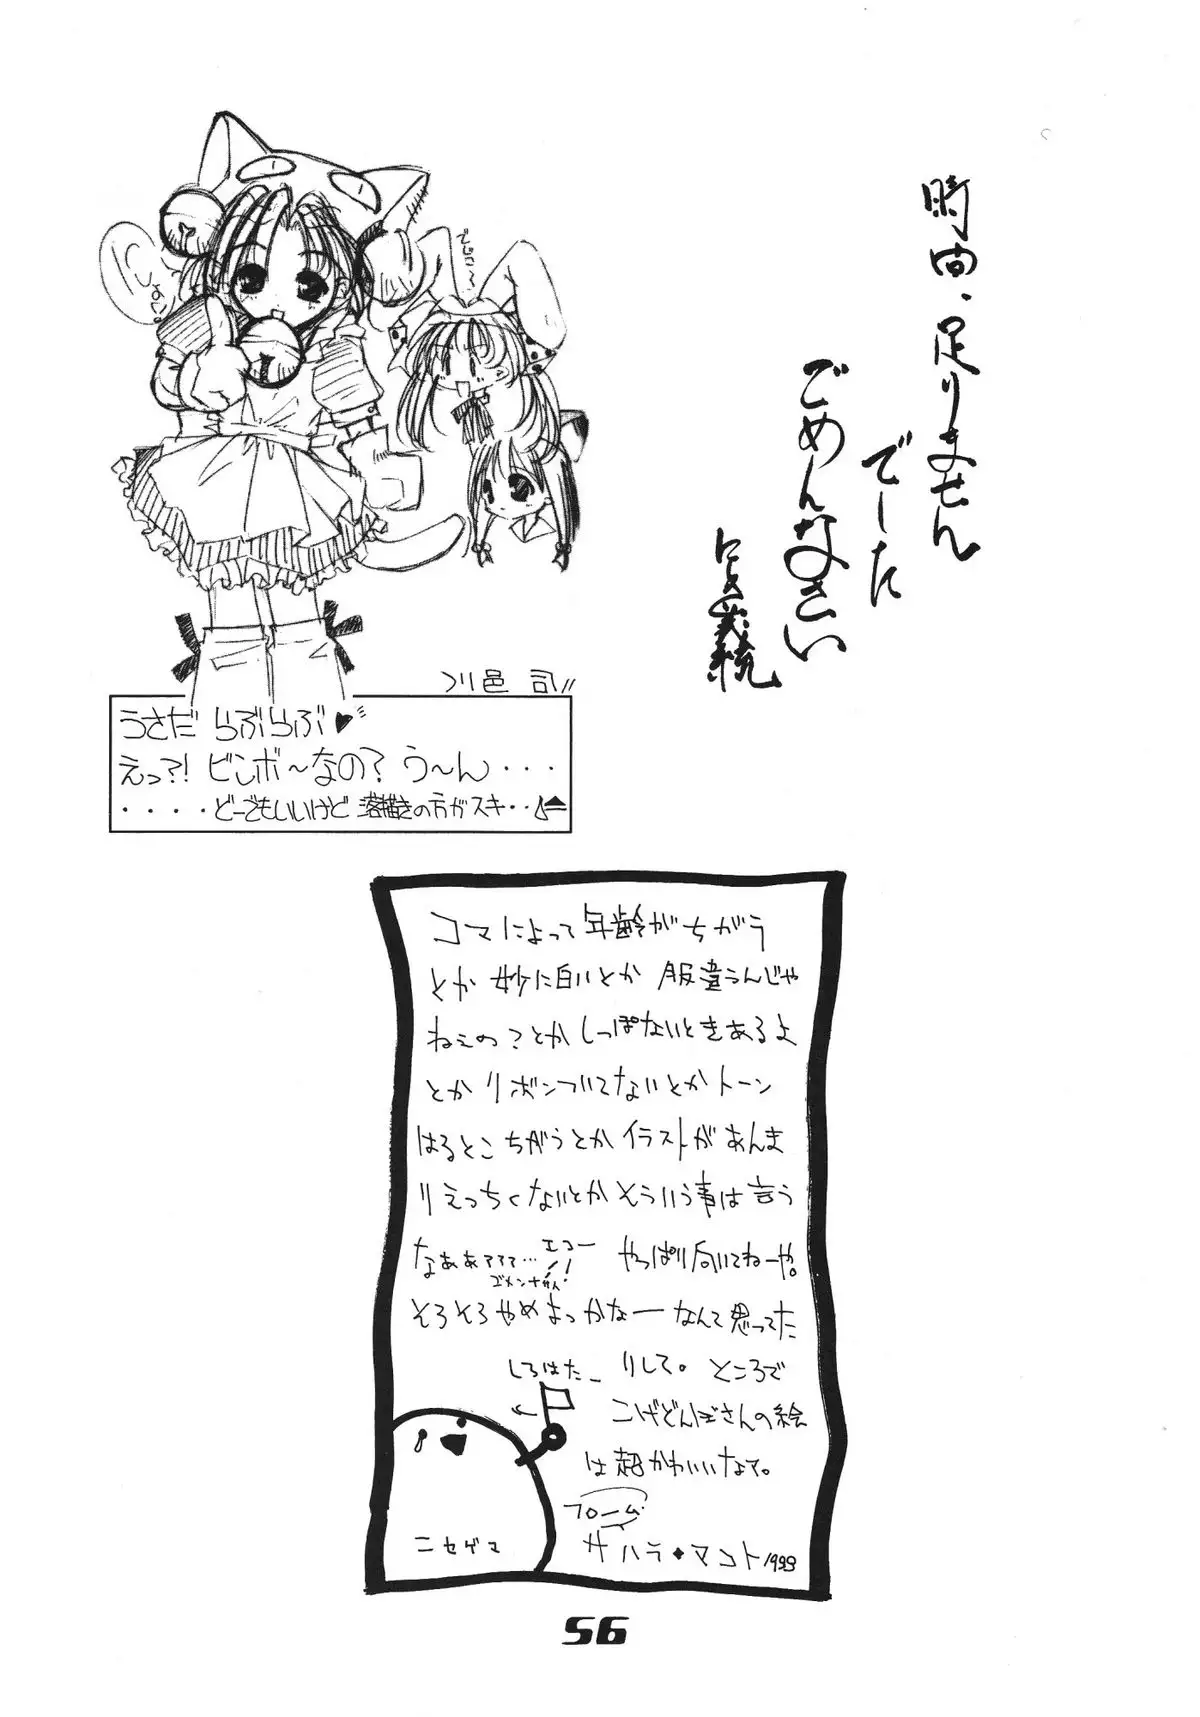 時間、足りません
でーた
ごめんなさい
しょく。
でじこ〜
川邑 司
うさだ らぶらぶ♥
えっ?! ビンボ〜なの? う〜ん・・・・
・・・・どーでもいいけど 落描きの方がスキ・・
コマによって年齢がちがう
とか 妙に白いとか 服違うんじゃ
ねぇの?とか しっぽないときあるよ
とか リボンついてないとか トーン
はるとこ ちがうとか イラストが あんま
り えっちくないとか そういう事は 言う
なああァァァ… エコー やっぱり 向いてねーや。
ゴメンナサイ!
そろそろやめよっかなー なんて 思ってた
しろはたー りして。ところで
こげどんぼさんの絵
は 超かわいいなて。
フローム
ニセゲマ サハラ◆マコト 1999
56